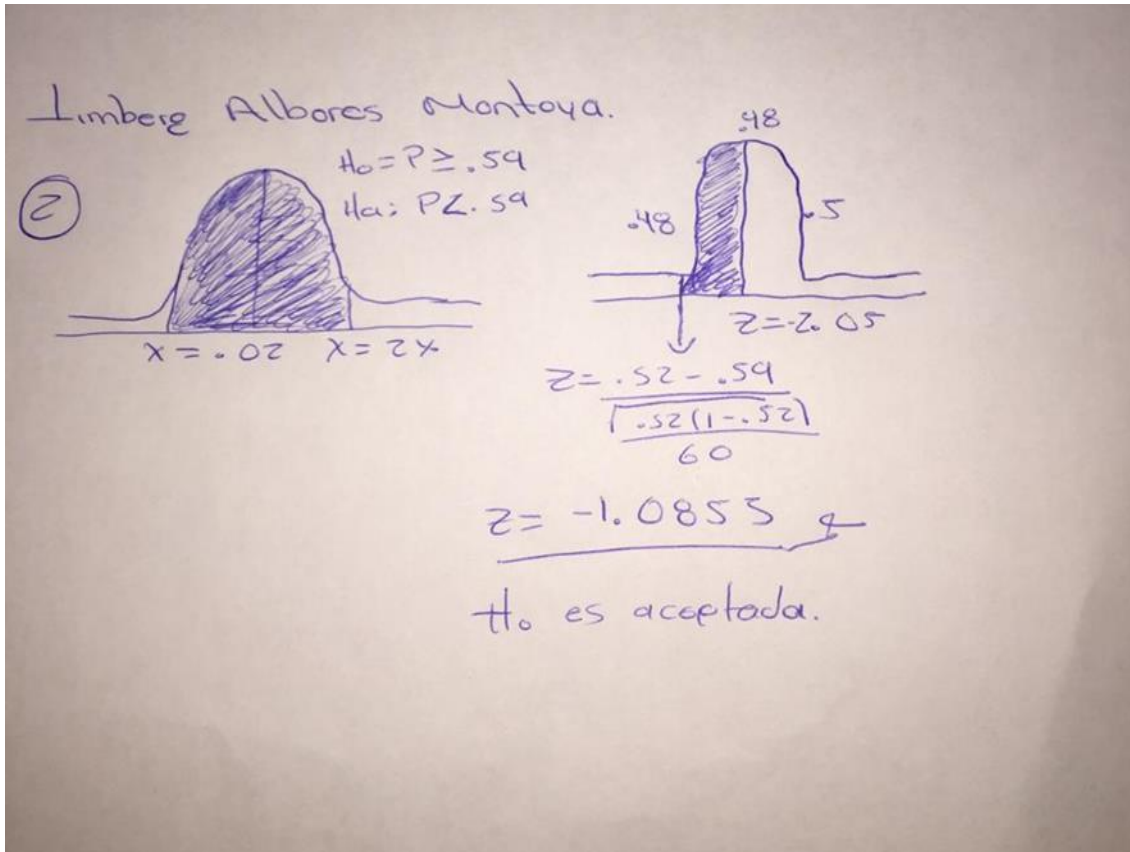 Limberg Albores Montoya.
②
Ho = P ≥ .59
Ha: P < .59
x = .02 x = 2%
.48
.48
.5
z = -2.05
z = .52 - .59
√.52(1-.52)
60
z = -1.0853
Ho es aceptada.